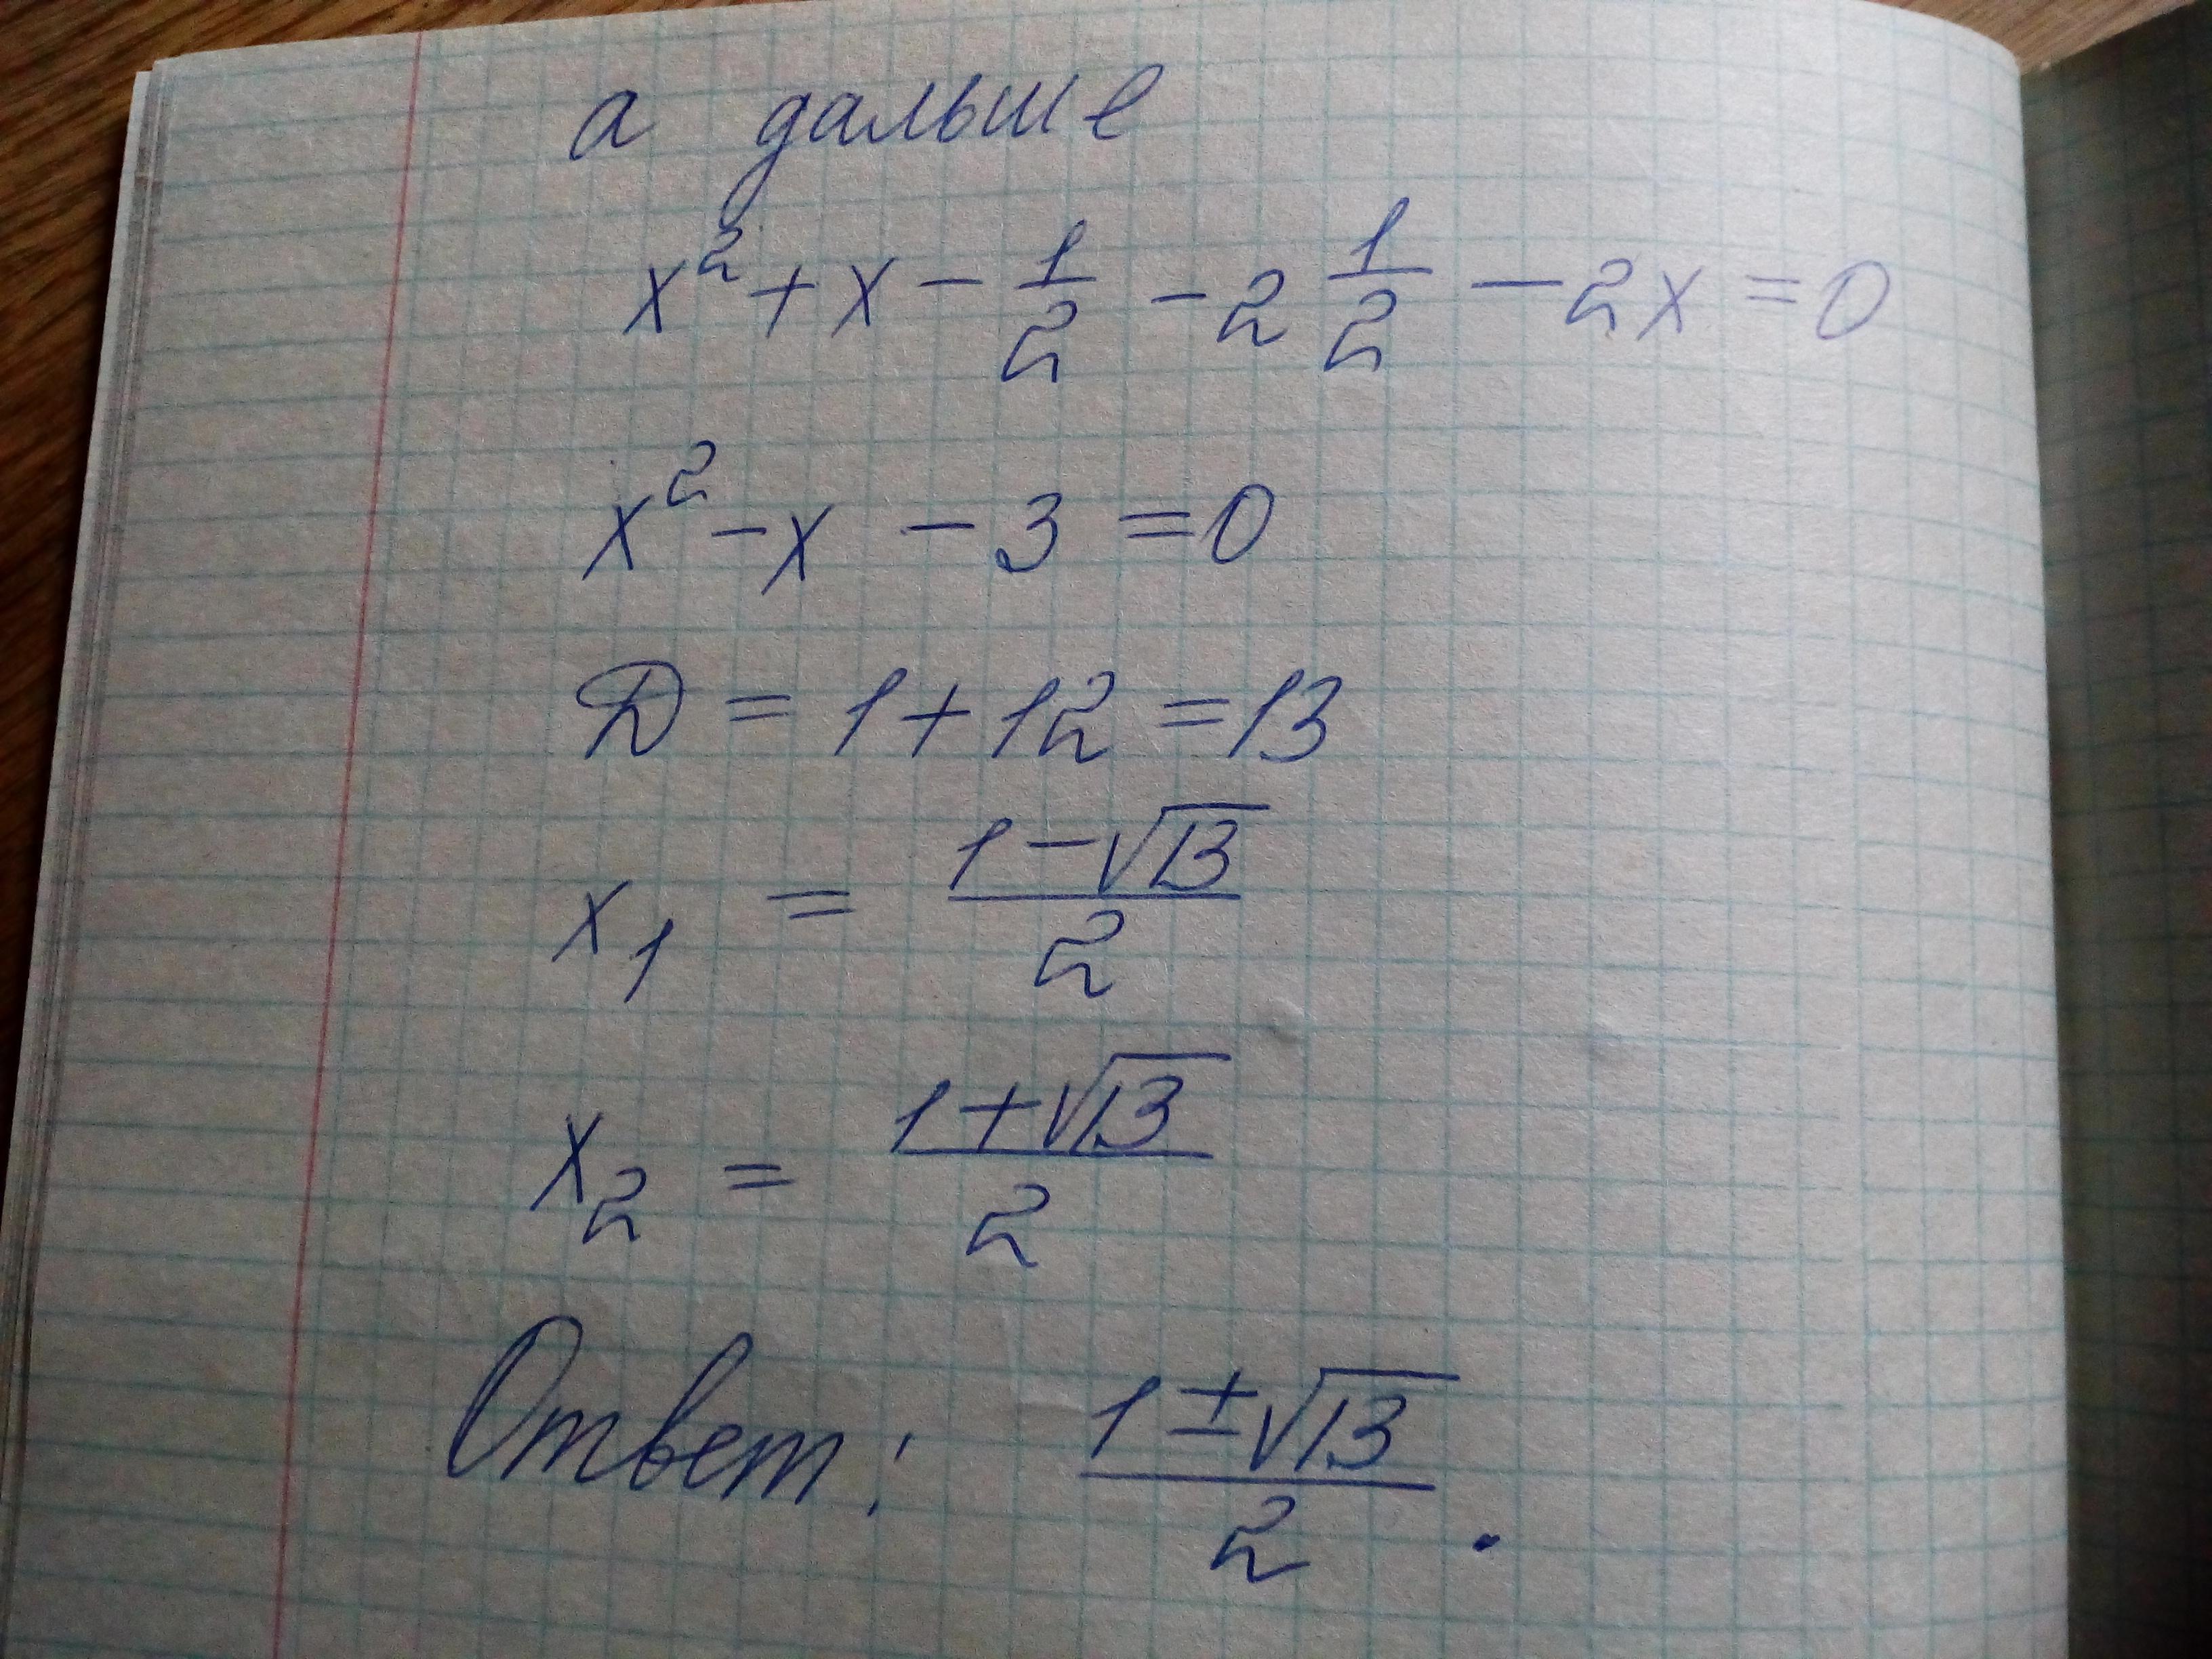 а дальше
x² + x - 1/2 - 2 1/2 - 2x = 0
x² - x - 3 = 0
D = 1 + 12 = 13
x₁ = (1 - √13)/2
x₂ = (1 + √13)/2
Ответ: (1 ± √13)/2.